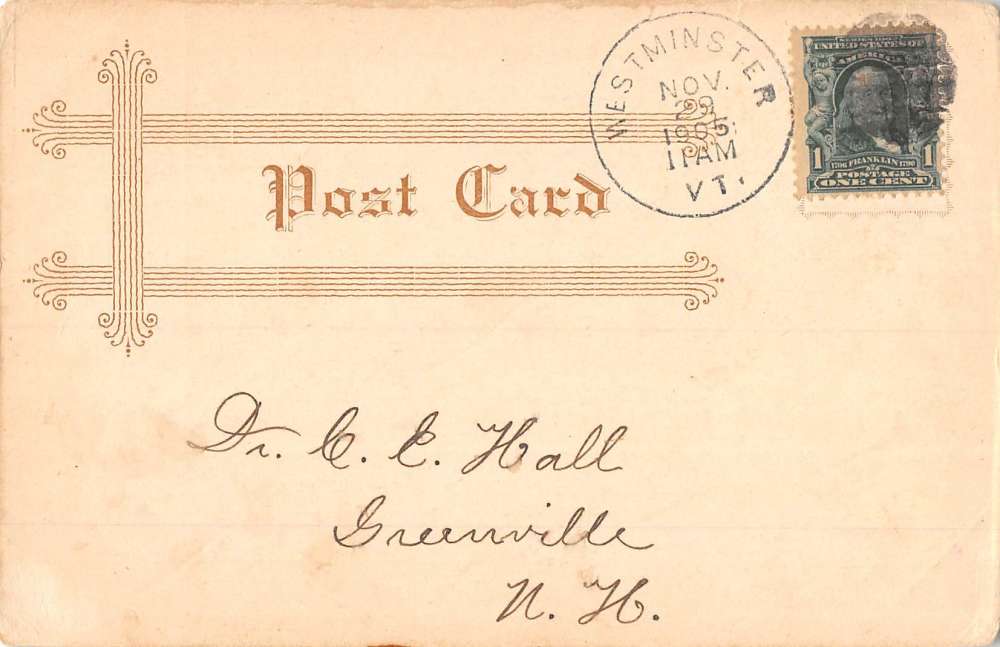 Post Card
WESTMINSTER
NOV.
29
1905
11 AM
VT.
SERIES 1902
UNITED STATES OF
AMERICA
1 1706 FRANKLIN 1790 1
POSTAGE
ONE CENT
Dr. C. E. Hall
Greenville
N. H.